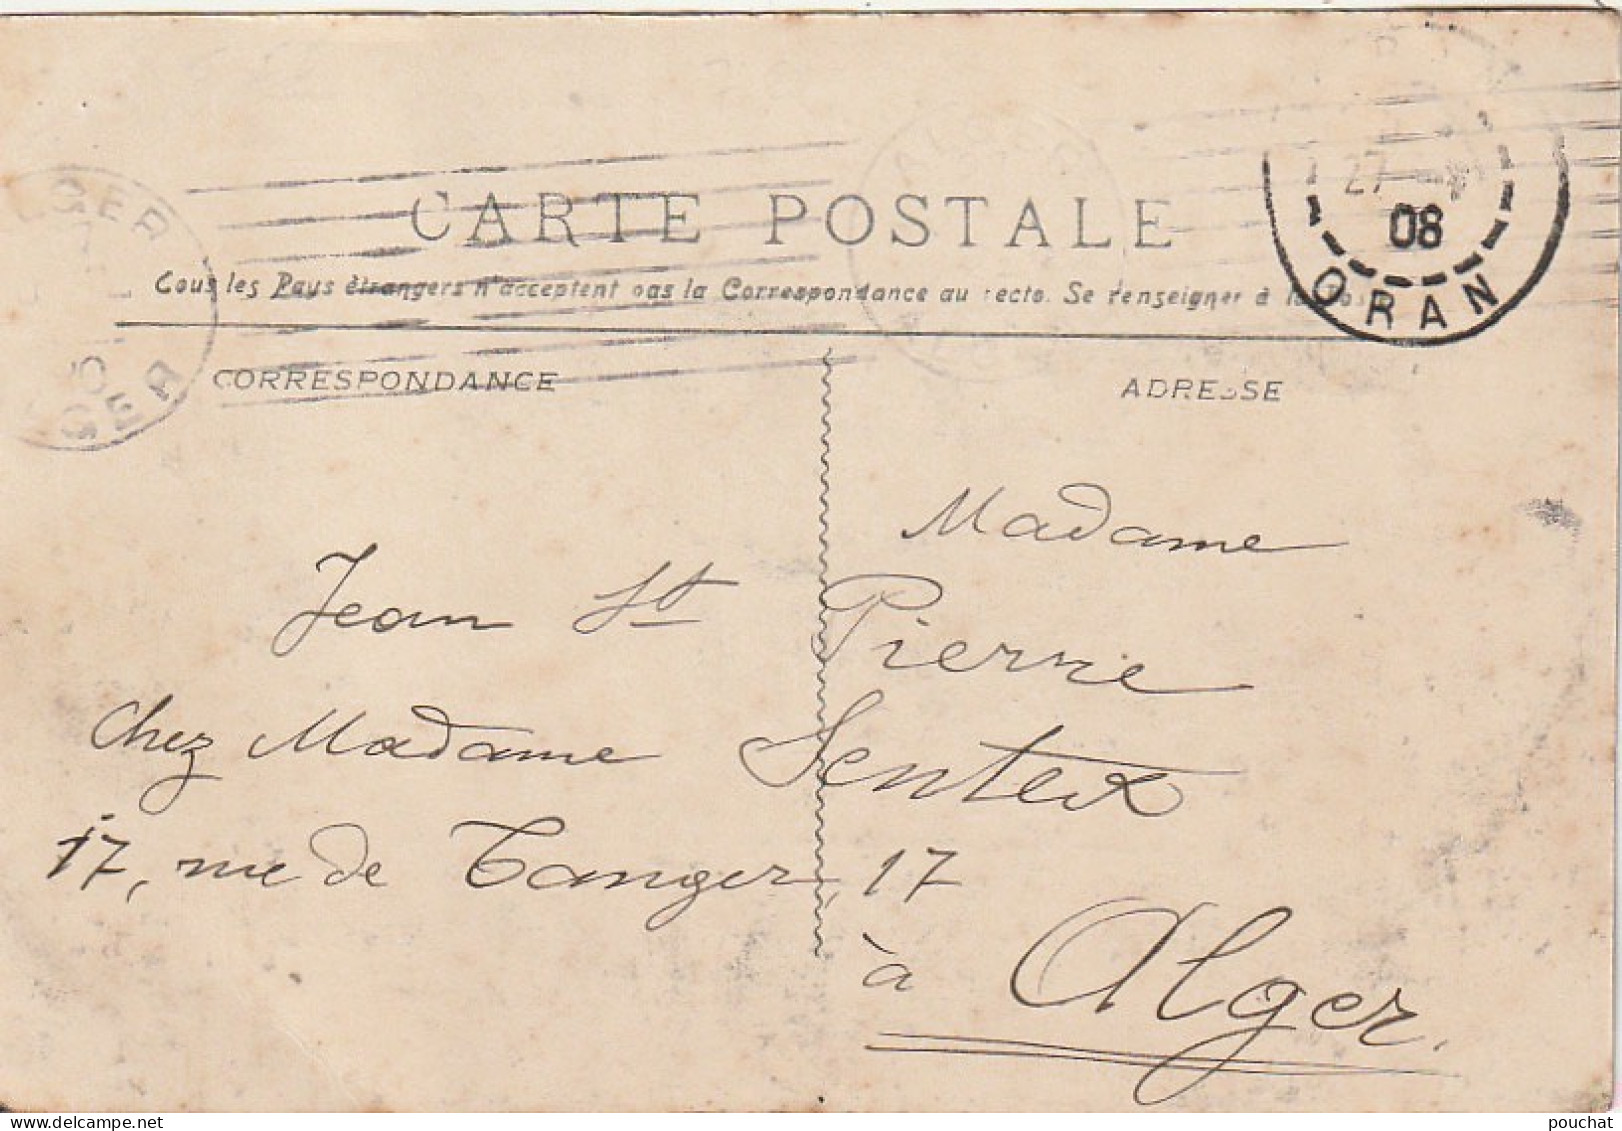 CARTE POSTALE
Tous les Pays étrangers n'acceptent pas la Correspondance au recto. Se renseigner à la
27
08
ORAN
GER
CORRESPONDANCE
ADRESSE
Madame
Jean St Pierre
Chez Madame Sentex
17, rue de Tanger, 17
à Alger.
pouchat